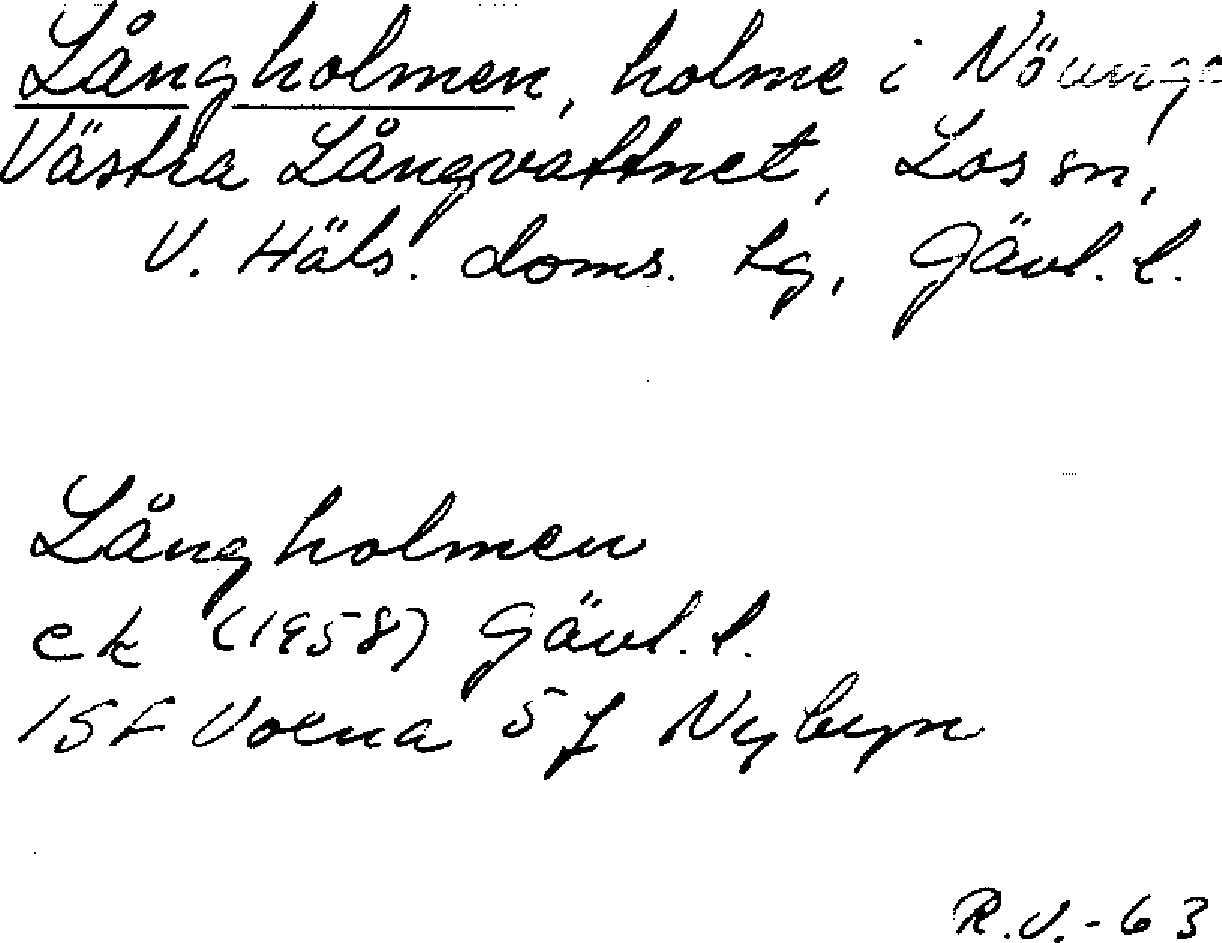 Långholmen, holme i
Västra Långvattnet, Los sn,
V. Häls. doms. tg, Gävl. l.
Långholmen
ek (1958) Gävl. l.
15F Voxna 5f Nybyn
R.V.-63